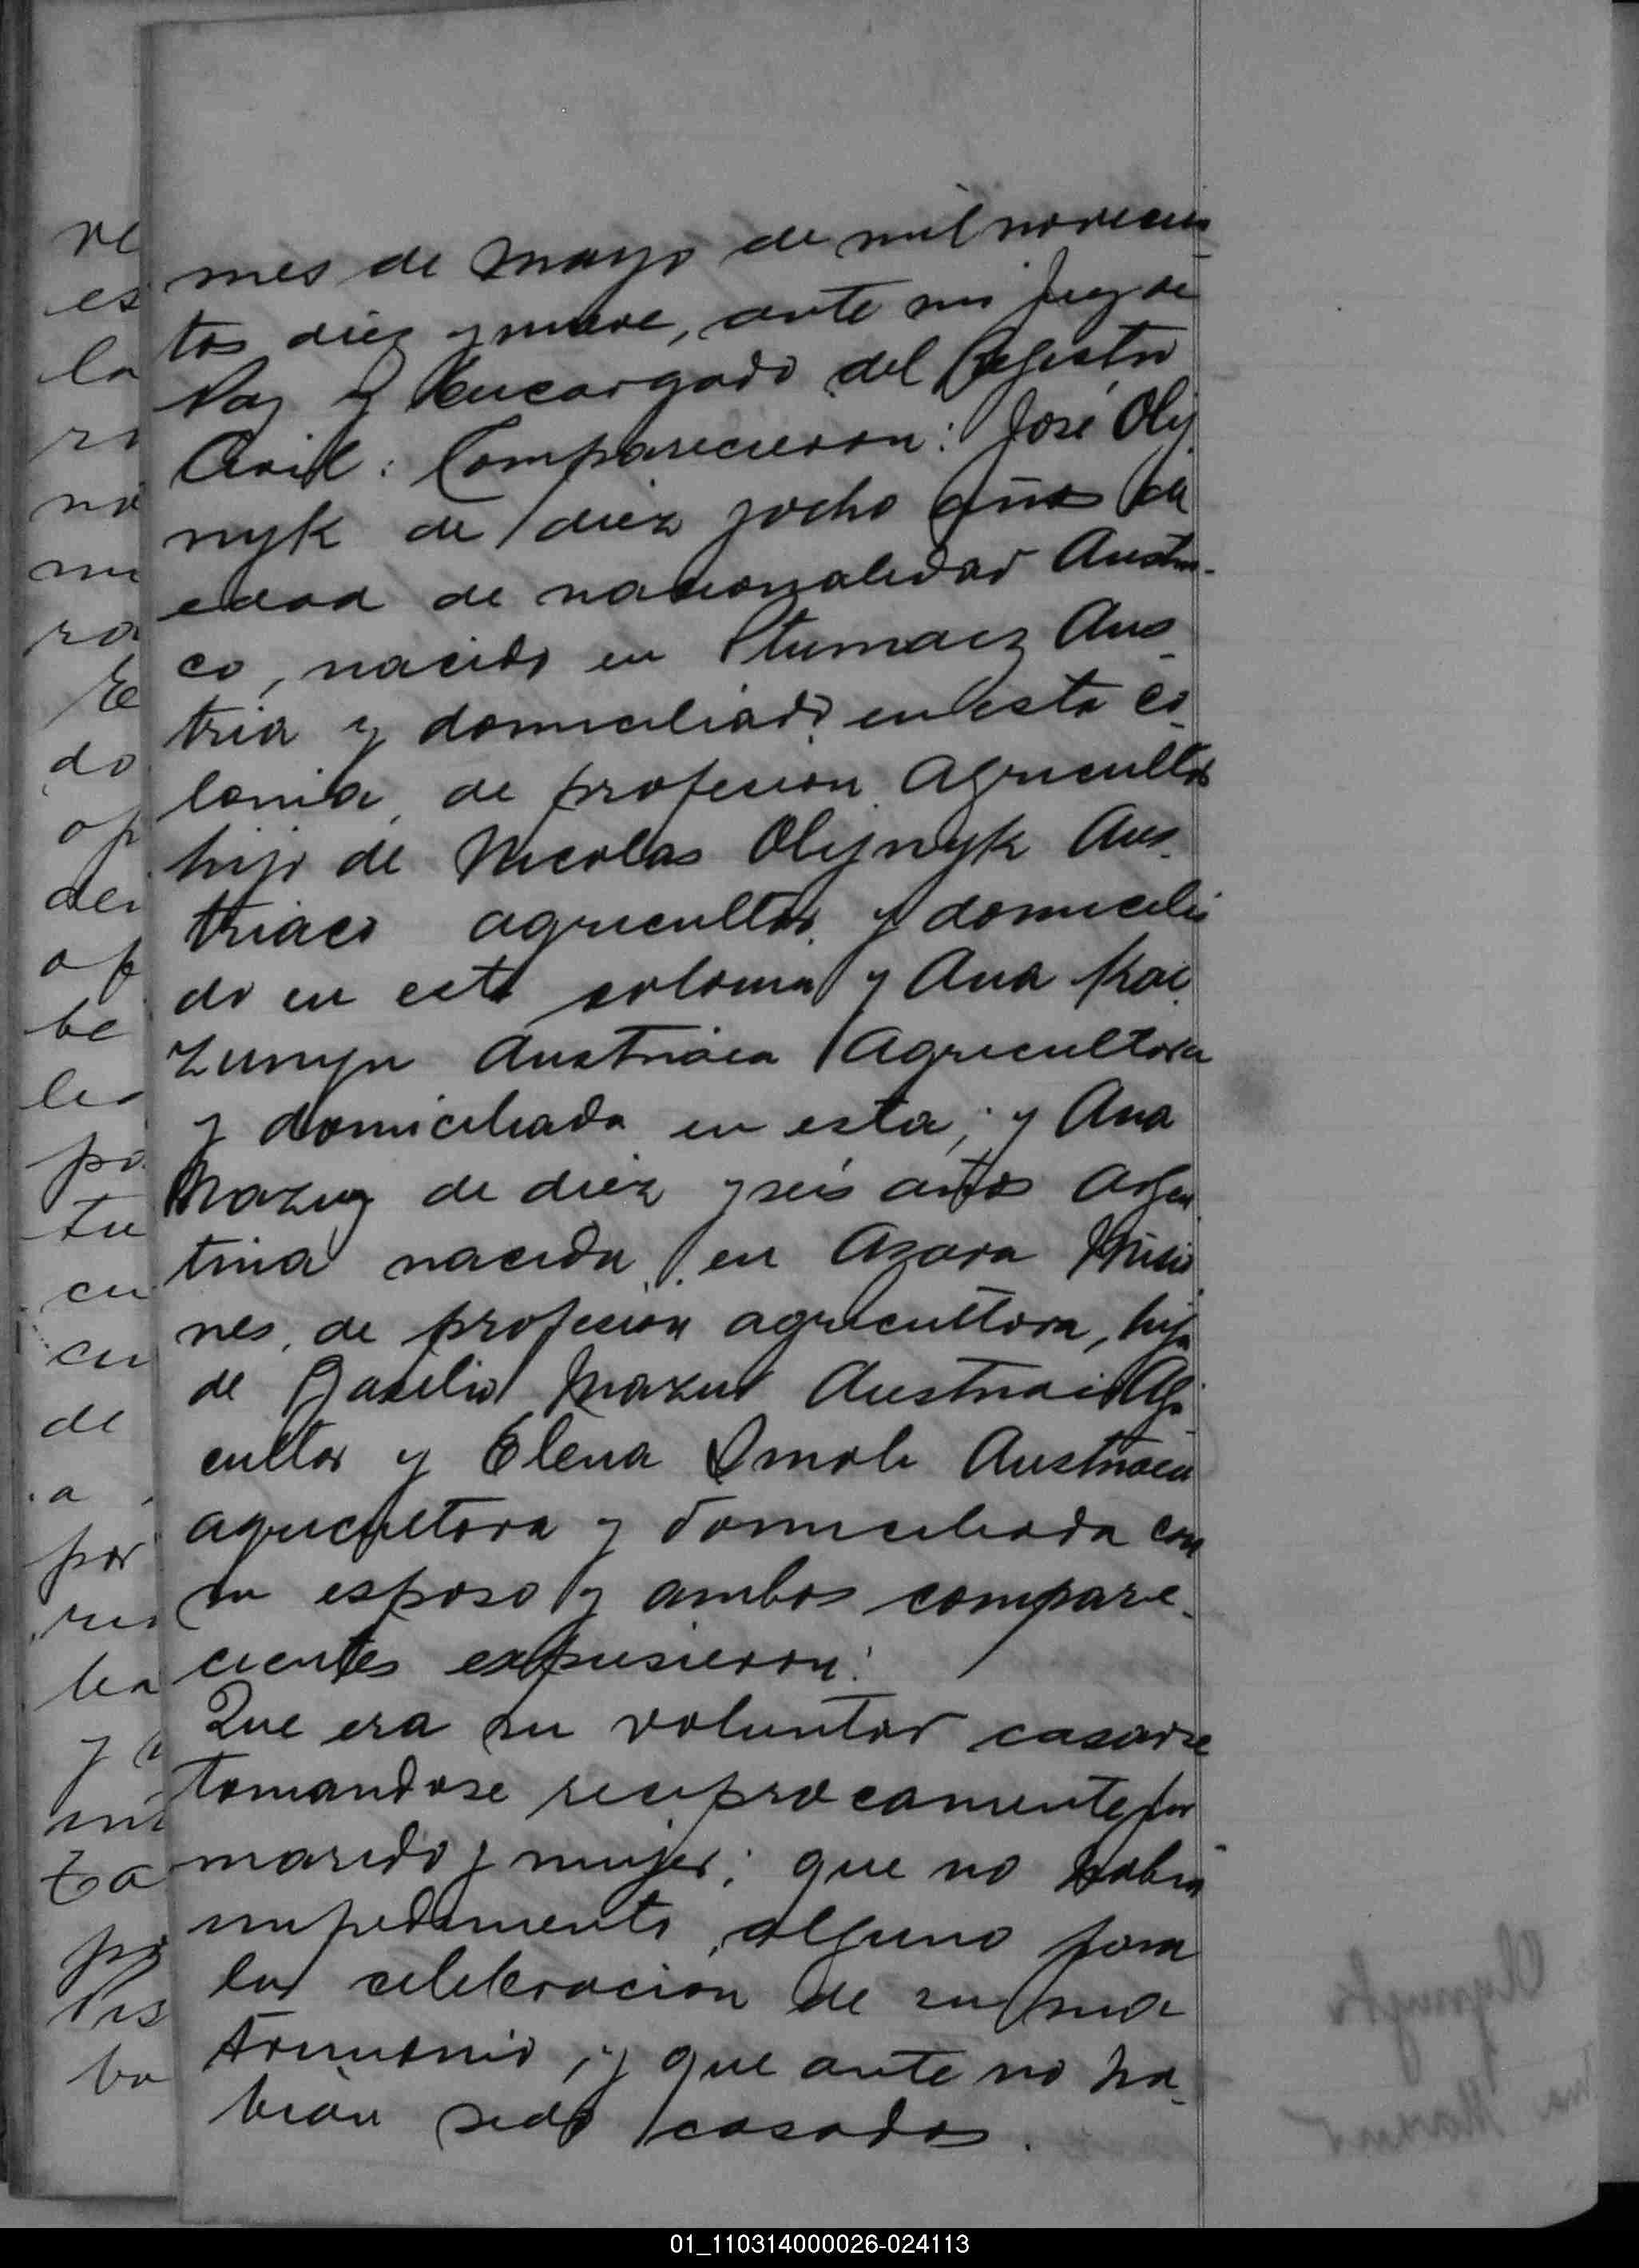 mes de Mayo de mil novecien
tos diez y nueve, ante mi Juez de
Paz y Encargado del Registro
Civil: Comparecieron: José Olij
nyk de diez y ocho años de
edad de nacionalidad Austria-
co, nacido en Otumacz Aus_
tria y domiciliado en esta co_
lonia, de profesion Agricultor
hijo de Nicolas Olijnyk Aus_
triaco agricultor y domicilia
do en esta colonia y Ana
Austriaca Agricultora
y domiciliada en esta; y Ana
Mazur de diez y seis años Argen
tina nacida en Azara Misio
nes, de profesion agricultora, hija
de Basilio Mazur Austriaco Agri
cultor y Elena Smola Austriaca
agricultora y domiciliada con
su esposo y ambos compare_
cientes expusieron:
Que era su voluntad casarse
tomandose reciprocamente por
marido y mujer; que no habia
impedimento alguno para
la celebracion de su ma
trimonio, y que ante no ha_
bian sido casados.
ve
es
la
no
ra
do
op
de
be
po
tu
cu
cu
de
a
por
ha
ta
ba
01_110314000026-024113